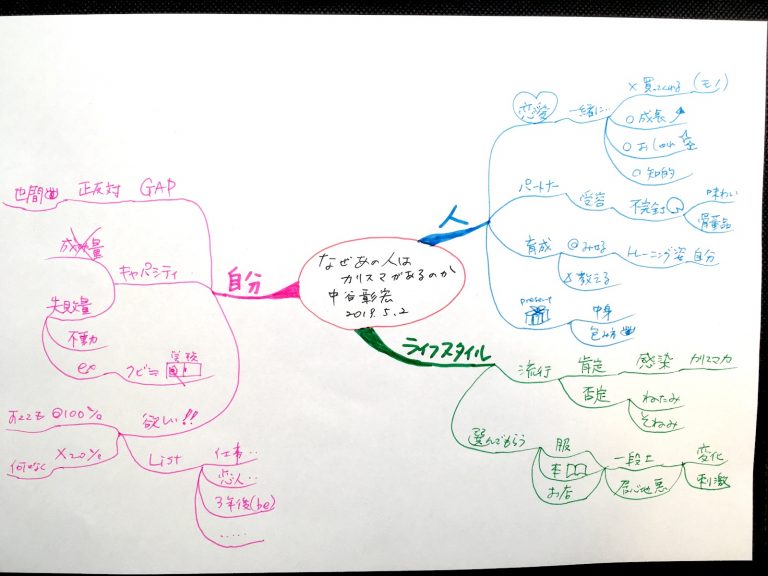 なぜあの人は
カリスマがあるのか
中谷彰宏
2019.5.2
人
恋愛
一緒に…
× 買ってくれる (モノ)
○ 成長
○ おしゃれ
○ 知的
パートナー
受容
不完全
味わい
骨董品
育成
◎みせる
トレーニング姿
自分
×教える
present
中身
包み方
ライフスタイル
流行
肯定
感染
カリスマ力
否定
ねたみ
そねみ
選んでもらう
服
本
お店
一段上
居心地悪
変化
刺激
自分
GAP
正反対
世間
キャパシティ
成功量
失敗量
不動
ex
クビ≒
学校
欲しい!!
あっても ◎100%
何となく ×20%
List
仕事‥
恋人‥
3年後(be)
.....